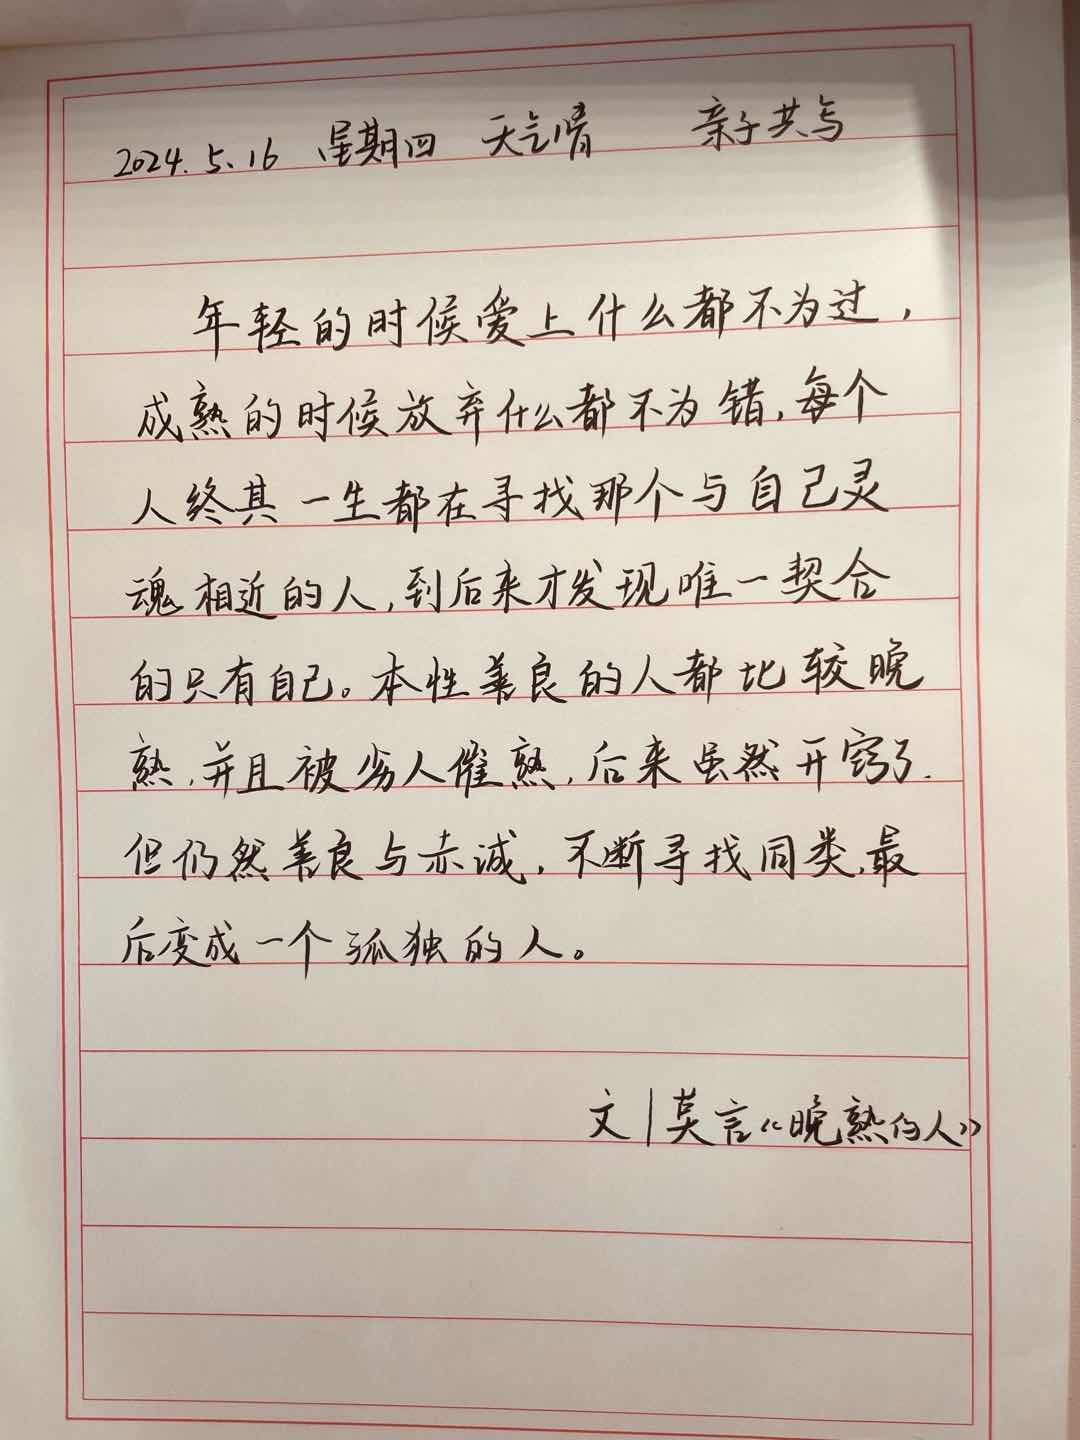 2024.5.16 星期四 天气晴 亲子共写
年轻的时候爱上什么都不为过，
成熟的时候放弃什么都不为错，每个
人终其一生都在寻找那个与自己灵
魂相近的人，到后来才发现唯一契合
的只有自己。本性善良的人都比较晚
熟，并且被劣人催熟，后来虽然开窍了．
但仍然善良与赤诚，不断寻找同类，最
后变成一个孤独的人。
文|莫言《晚熟的人》